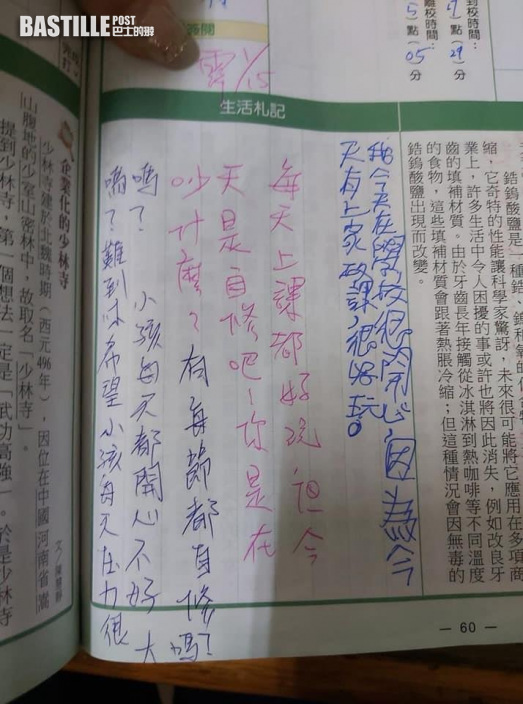 BASTILLE POST
巴士的報
到校時間：
7 點(29)分
離校時間：
(5)點(05)分
1/15
生活札記
縮，它奇特的性能讓科學家驚訝，未來很可能將它應用在多項商
業上，許多生活中令人困擾的事或許也將因此消失，例如改良牙
齒的填補材質。由於牙齒長年接觸從冰淇淋到熱咖啡等不同溫度
的食物，這些填補材質會跟著熱脹冷縮；但這種情況會因無毒的
鋯鎢酸鹽出現而改變。
— 60 —
我今天在學校很開心，因為今
天有上家政課，很好玩。
每天上課都好玩，但今
天是自修吧！你是在
吵什麼？有每節都自修嗎？
嗎？小孩每天都開心不好
嘴？難到你希望小孩每天压力很
大
企業化的少林寺
少林寺建於北魏時期（西元496年），因位在中國河南省嵩
山腹地的少室山密林中，故取名「少林寺」。
提到少林寺，第一個想法一定是「武功高強」。於是少林寺